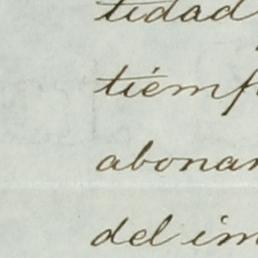 tidad
tiémp
abonar
del im